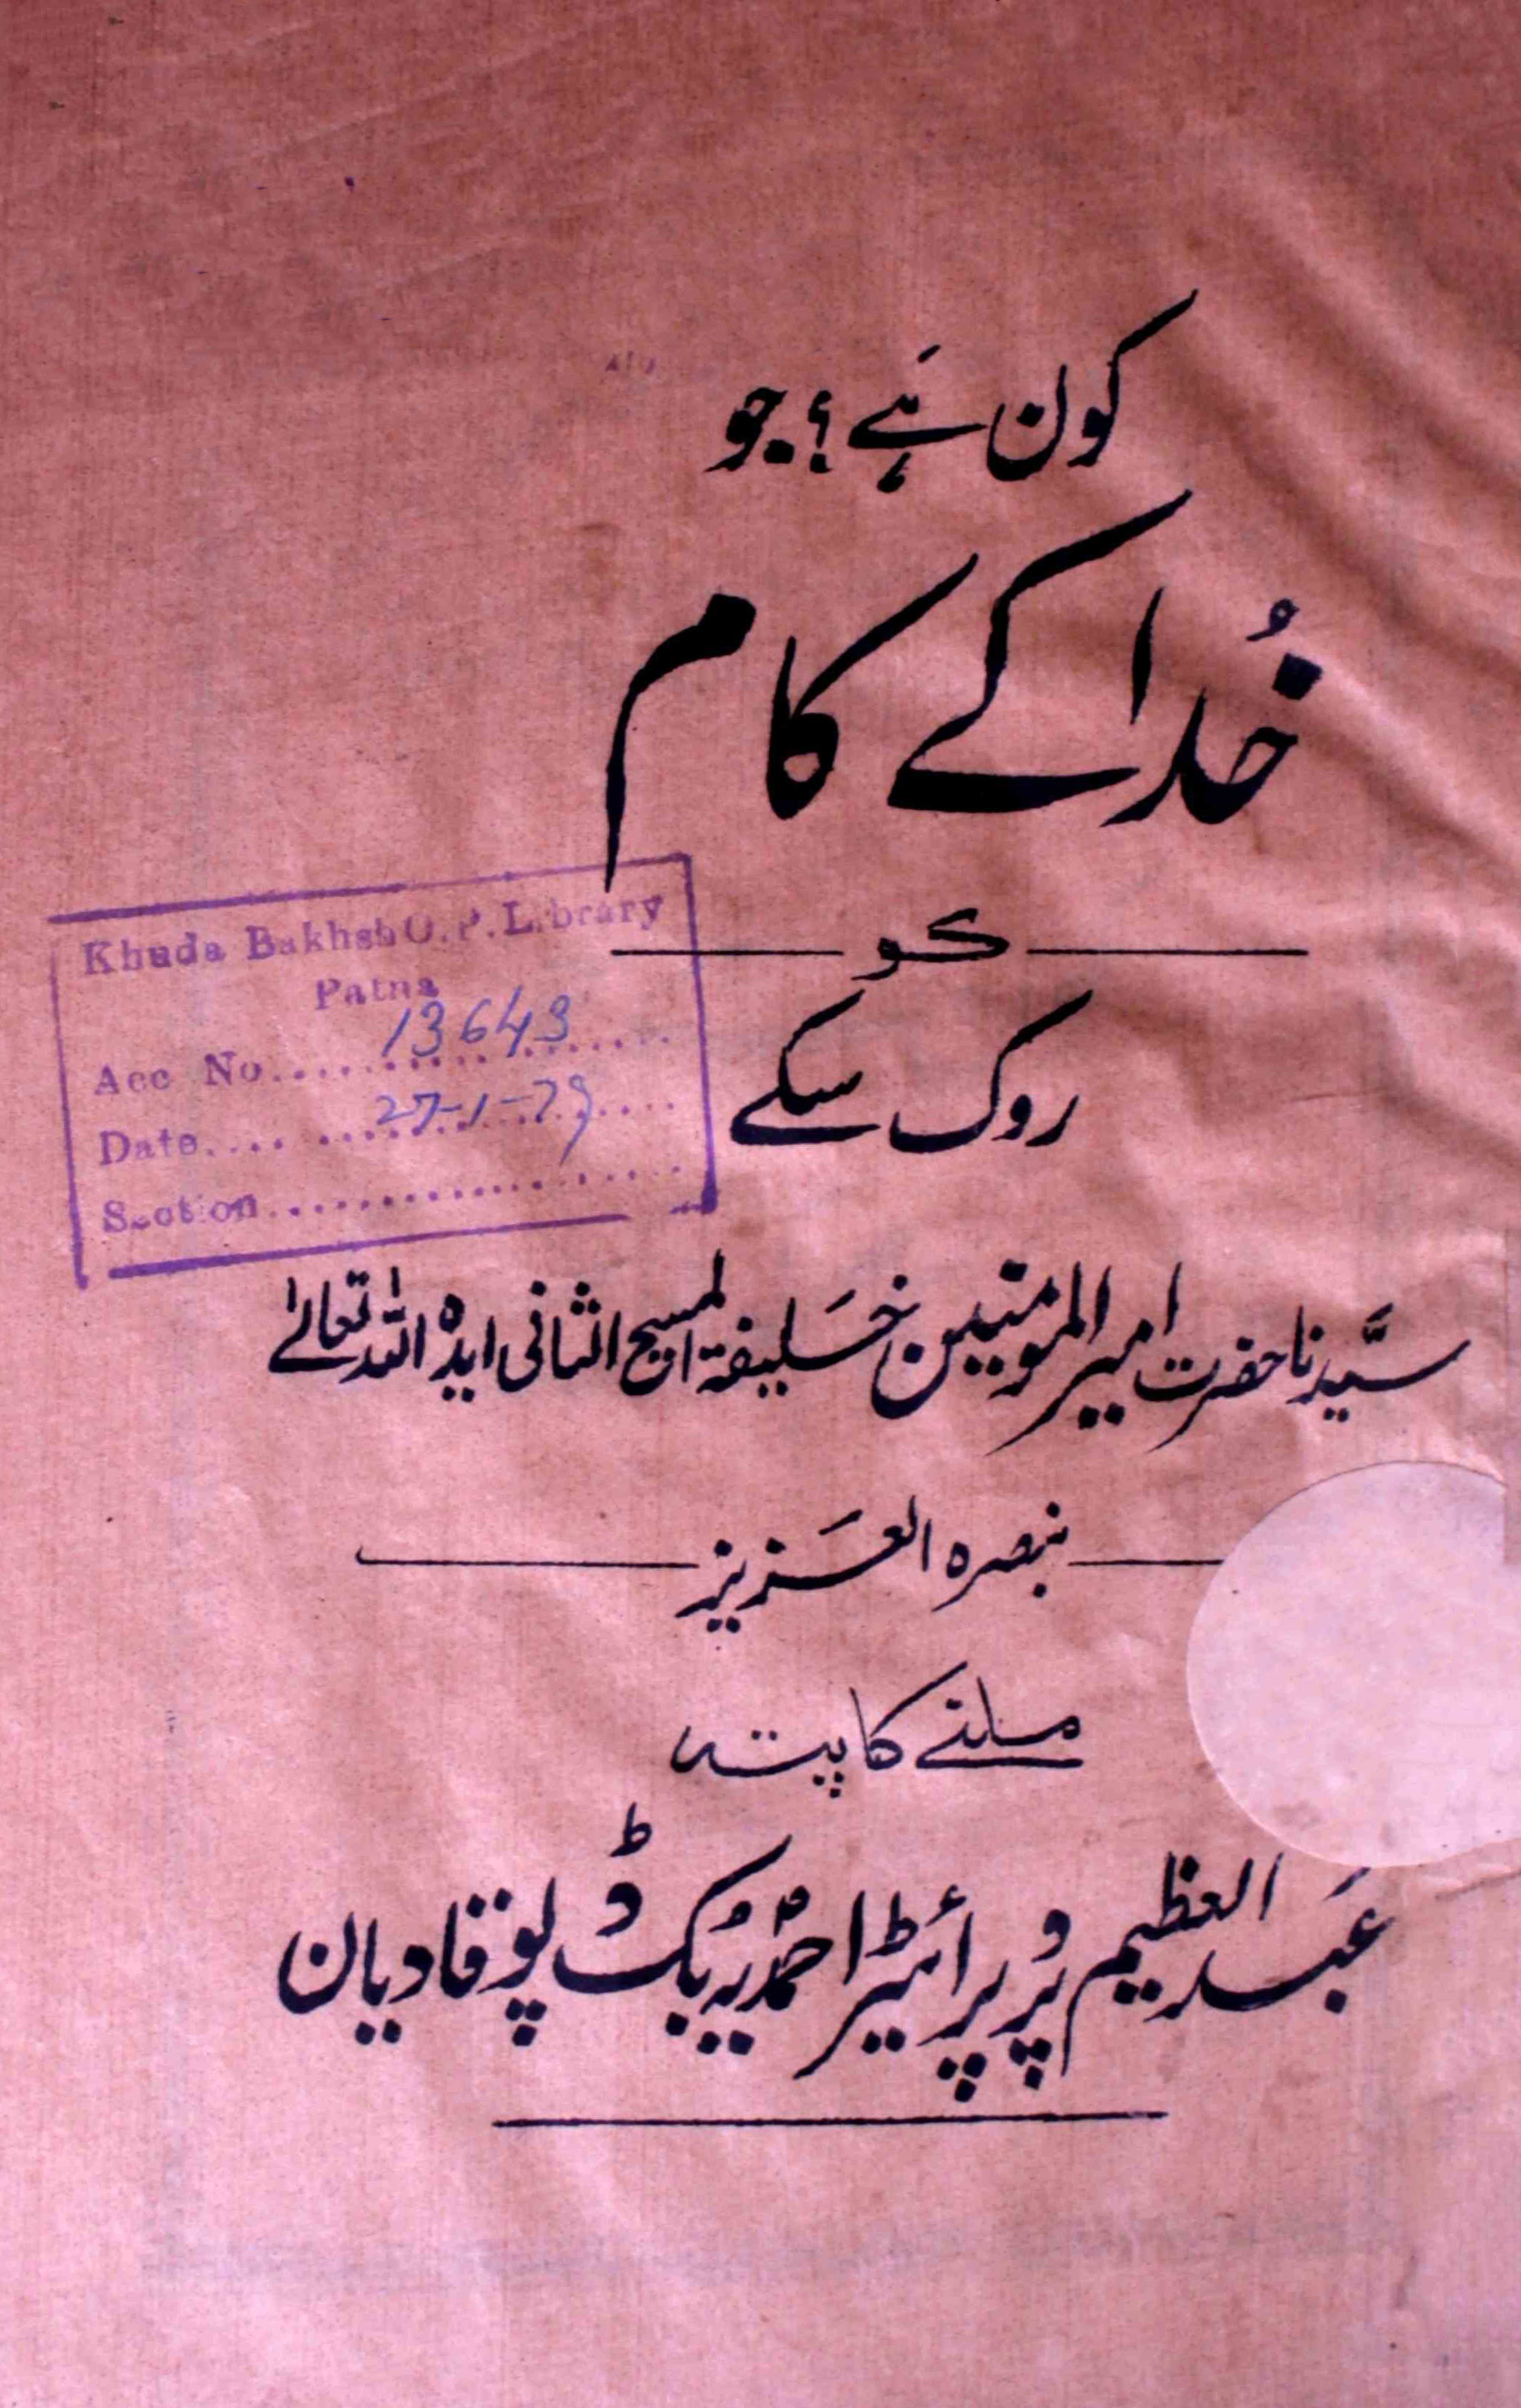 کون ہے؟ جو
خُدا کے کام
کو
روک سکے
Khuda Bakhsh O. P. Library
Patna
Acc No. 13643
Date 27-1-79
Section
سیّدنا حضرت امیر المومنین خلیفۃ المسیح الثانی ایدہ اللہ تعالےٰ
بنصرہ العزیز
ملنے کا پتہ
عبد العظیم پروپرائیٹر احمدیہ بک ڈپو قادیان